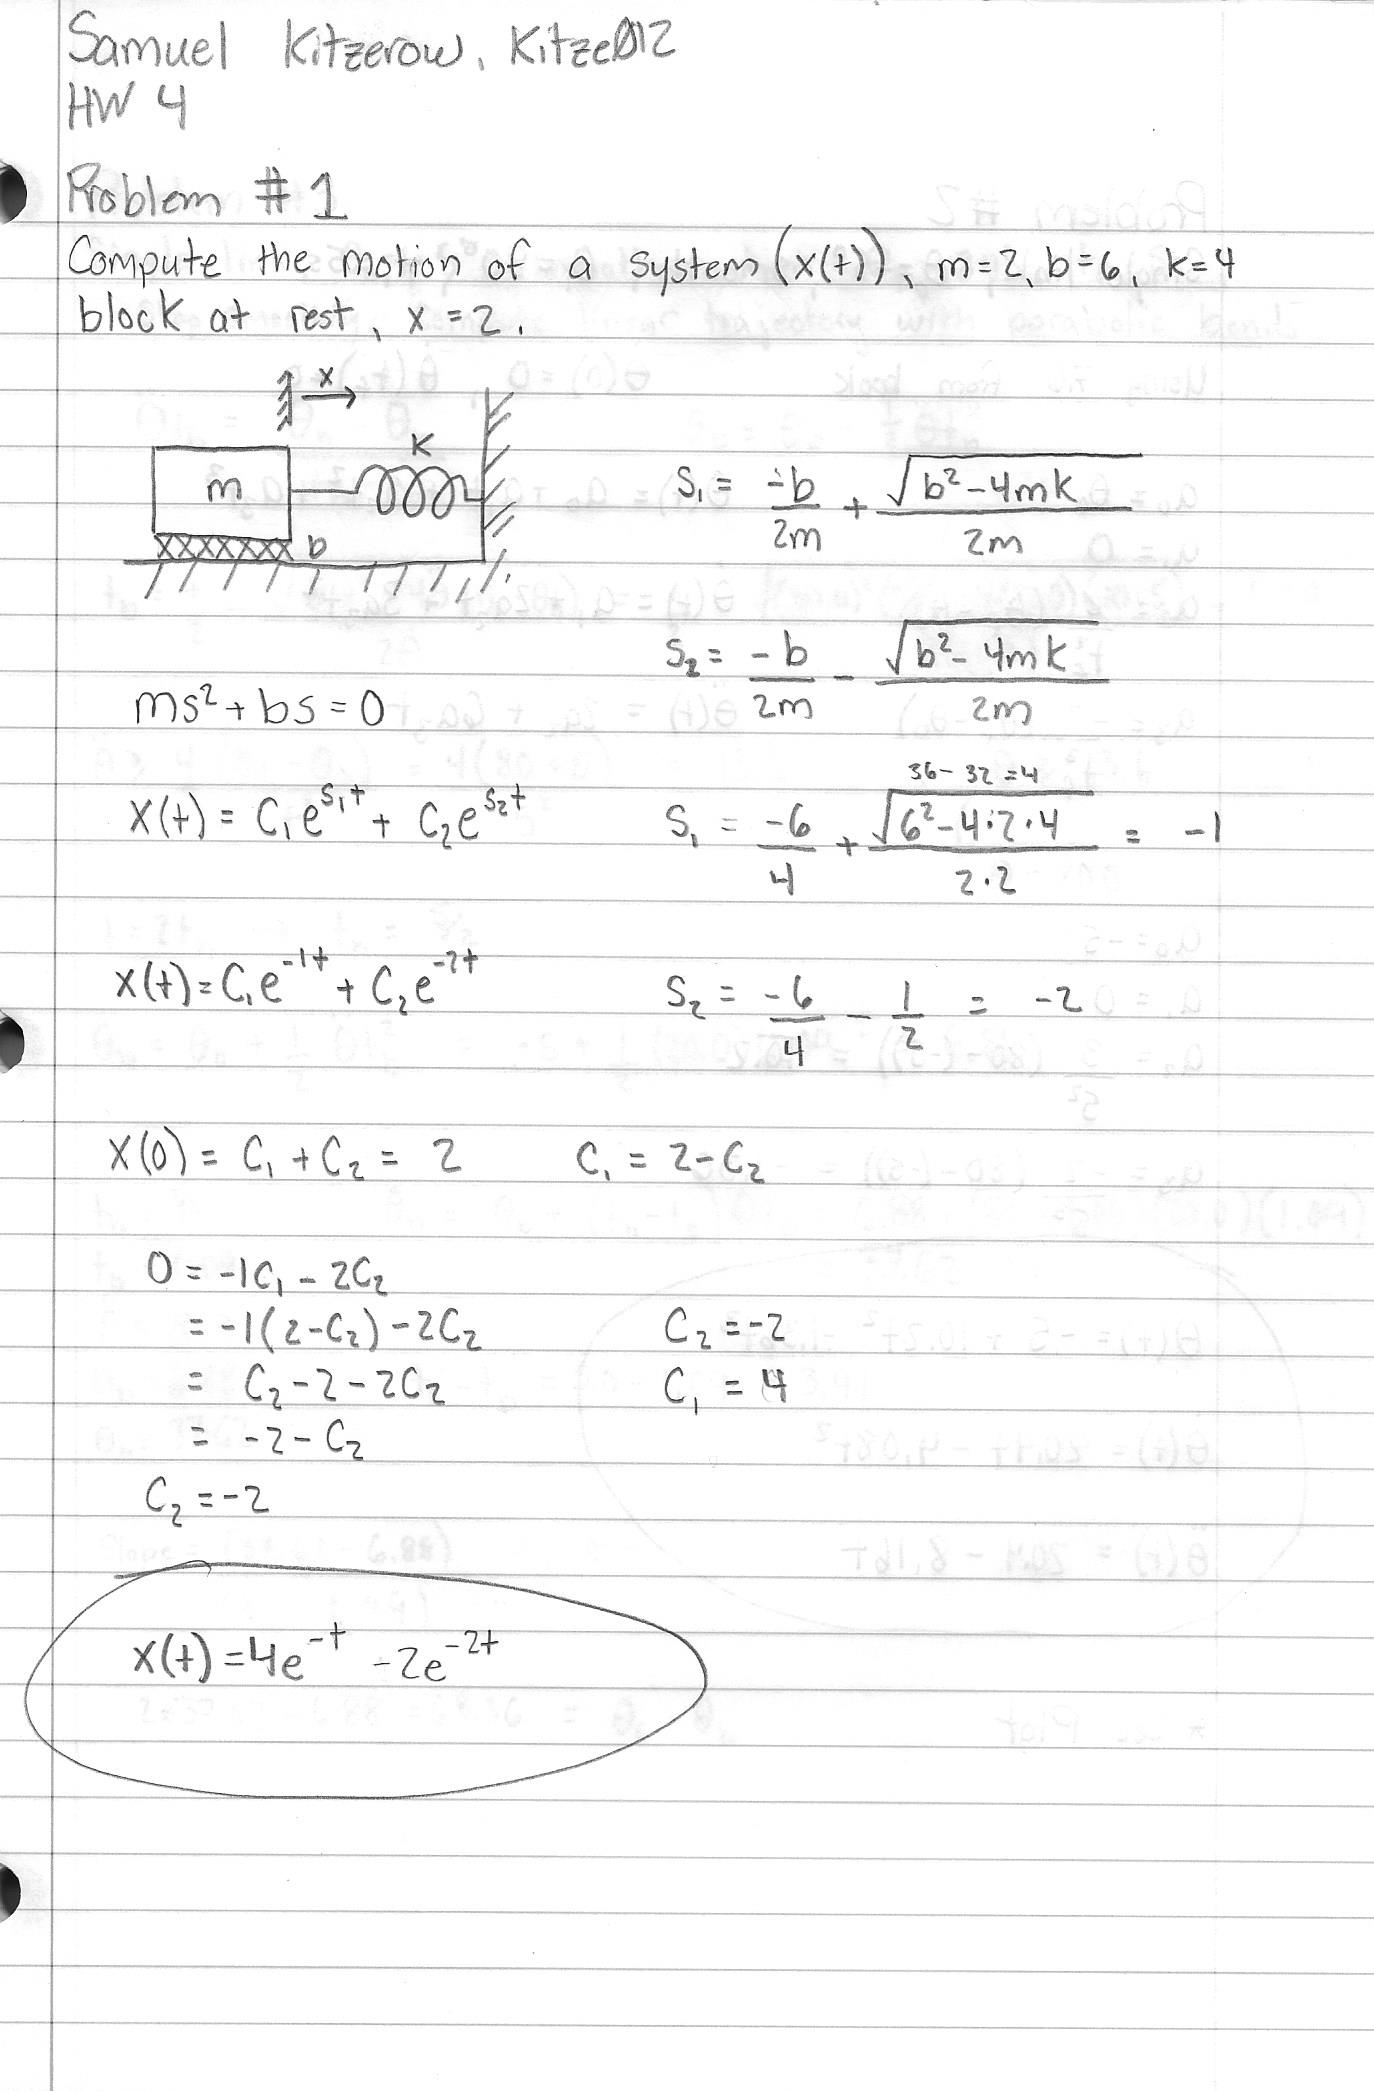 Samuel Kitzerow, Kitze012
HW 4
Problem #1
Compute the motion of a system (x(t)), m=2, b=6, k=4
block at rest, x=2.
x
K
m
b
S₁ = -b/2m + √(b²-4mk)/2m
S₂ = -b/2m - √(b²-4mk)/2m
ms²+bs=0
36-32=4
x(t) = C₁e^(s₁t) + C₂e^(s₂t)
S₁ = -6/4 + √(6²-4·2·4)/2·2 = -1
x(t)=C₁e^(-1t) + C₂e^(-2t)
S₂ = -6/4 - 1/2 = -2
x(0) = C₁ + C₂ = 2
C₁ = 2-C₂
0 = -1C₁ - 2C₂
= -1(2-C₂) -2C₂
C₂ = -2
= C₂ -2 -2C₂
C₁ = 4
= -2 - C₂
C₂ = -2
x(t) = 4e^(-t) - 2e^(-2t)